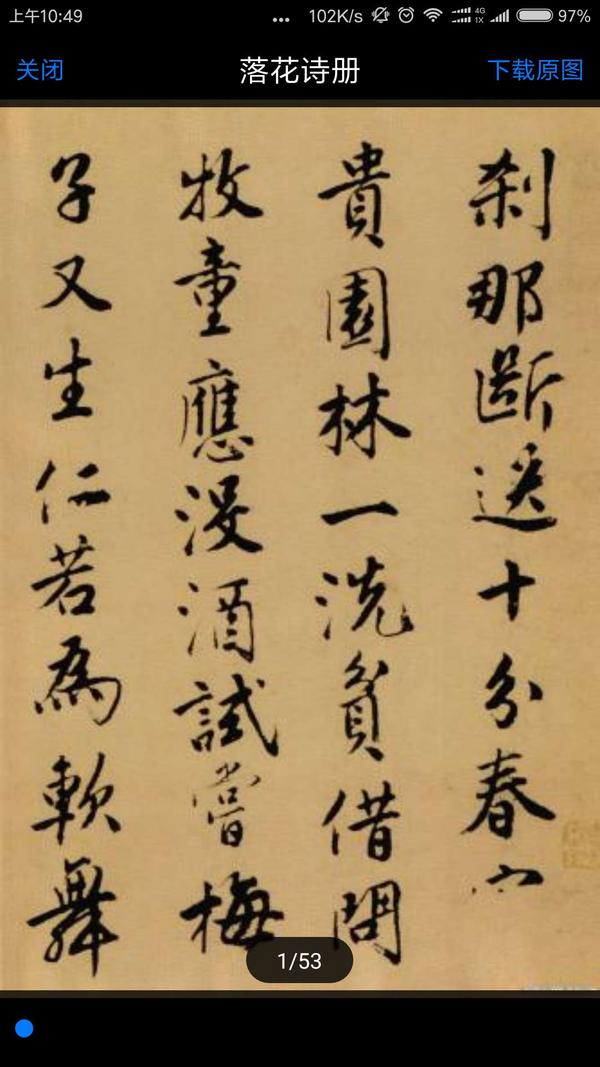 上午10:49 ... 102K/s 4G 1X 97%
关闭 落花诗册 下载原图
刹那断送十分春富
貴園林一洗貧借問
牧童應没酒試嘗梅
子又生仁若為軟舞
1/53